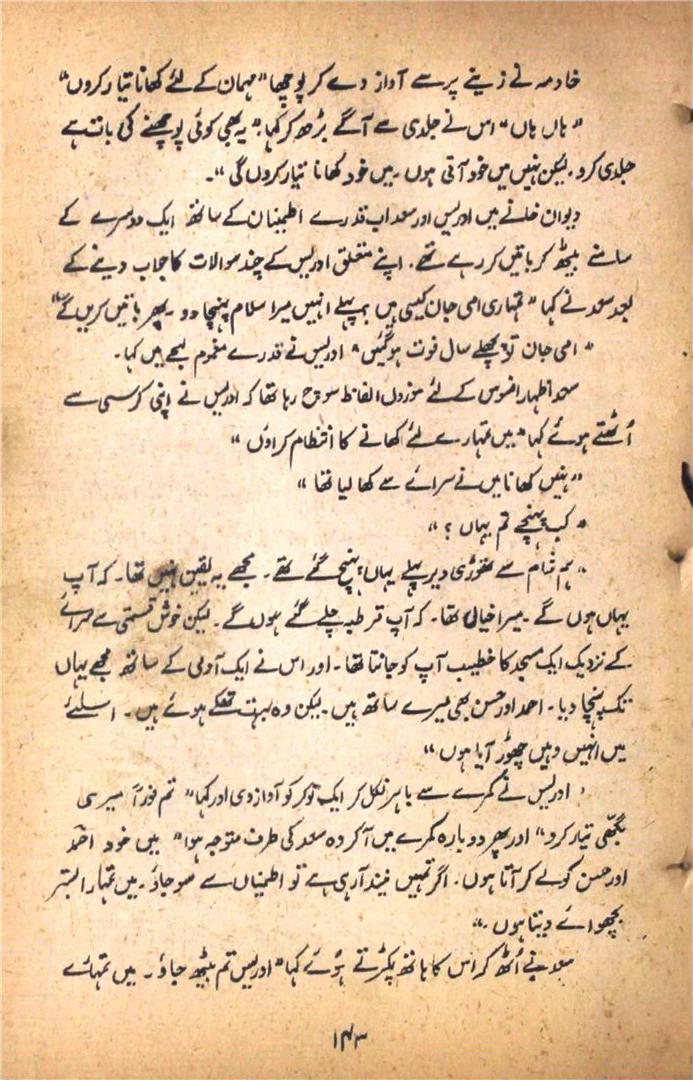 خادمہ نے زینے پر سے آواز دے کر پوچھا "مہمان کے لئے کھانا تیار کروں"
"ہاں ہاں" اس نے جلدی سے آگے بڑھ کر کہا۔ "یہ بھی کوئی پوچھنے کی بات ہے
جلدی کرو۔ لیکن نہیں میں خود آتی ہوں۔ میں خود کھانا تیار کروں گی"۔
دیوان خانے میں ادریس اور سعد اب قدرے اطمینان کے ساتھ ایک دوسرے کے
سامنے بیٹھ کر باتیں کر رہے تھے۔ اپنے متعلق ادریس کے چند سوالات کا جواب دینے کے
بعد سعد نے کہا "تمہاری امی جان کیسی ہیں پہلے انہیں میرا سلام پہنچا دو۔ پھر باتیں کریں گے"
"امی جان تو پچھلے سال فوت ہو گئیں" ادریس نے قدرے مغموم لہجے میں کہا۔
سعد اظہار افسوس کے لئے موزوں الفاظ سوچ رہا تھا کہ ادریس نے اپنی کرسی سے
اُٹھتے ہوئے کہا "میں تمہارے لئے کھانے کا انتظام کراؤں"
"نہیں کھانا میں نے سرائے سے کھا لیا تھا"
"کب پہنچے تم یہاں ؟"
"ہم شام سے تھوڑی دیر پہلے یہاں پہنچ گئے تھے۔ مجھے یہ یقین نہیں تھا۔ کہ آپ
یہاں ہوں گے۔ میرا خیال تھا۔ کہ آپ قرطبہ چلے گئے ہوں گے۔ لیکن خوش قسمتی سے سرائے
کے نزدیک ایک مسجد کا خطیب آپ کو جانتا تھا۔ اور اس نے ایک آدمی کے ساتھ مجھے یہاں
تک پہنچا دیا۔ احمد اور حسن بھی میرے ساتھ ہیں۔ لیکن وہ بہت تھکے ہوئے ہیں۔ اسلئے
میں انہیں وہیں چھوڑ آیا ہوں"
ادریس نے کمرے سے باہر نکل کر ایک نوکر کو آواز دی اور کہا "تم فوراً میری
بگھی تیار کرو" اور پھر دوبارہ کمرے میں آ کر وہ سعد کی طرف متوجہ ہوا "میں خود احمد
اور حسن کو لے کر آتا ہوں۔ اگر تمہیں نیند آ رہی ہے تو اطمینان سے سو جاؤ۔ میں تمہارا بستر
بچھوائے دیتا ہوں۔"
سعد نے اُٹھ کر اس کا ہاتھ پکڑتے ہوئے کہا "ادریس تم بیٹھ جاؤ۔ میں تمہارے
۱۴۳